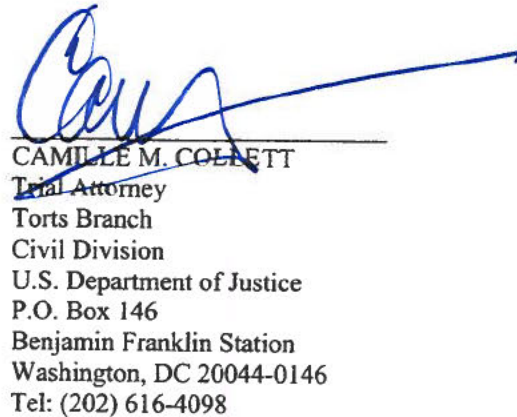 CAMILLE M. COLLETT
Trial Attorney
Torts Branch
Civil Division
U.S. Department of Justice
P.O. Box 146
Benjamin Franklin Station
Washington, DC 20044-0146
Tel: (202) 616-4098